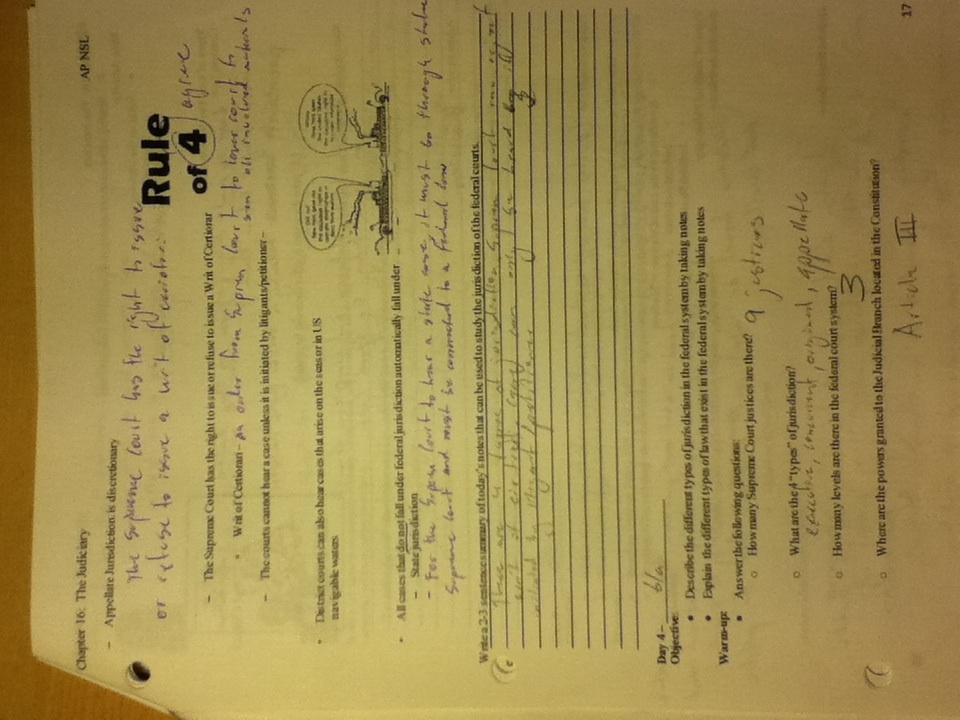 Chapter 16: The Judiciary
AP NSL
– Appellate Jurisdiction is discretionary
The Supreme Court has the right to issue
or refuse to issue a writ of
Rule
of 4 agree
– The Supreme Court has the right to issue or refuse to issue a Writ of Certiorar
Writ of Certiorari – an order from Suprem Court to lower court to
all involved
– The courts cannot hear a case unless it is initiated by litigants/petitioner –
• District courts can also hear cases that arise on the seas or in US
navigable waters
• All cases that do not fall under federal jurisdiction automatically fall under
– State jurisdiction
– For the Supreme Court to hear a state case, it must go through
Supreme Court and must be connected to a Federal
Write a 2-3 sentence summary of today's notes that can be used to study the jurisdiction of the federal courts.
There are 4 of jurisdiction Suprem Court can
writ of can only be heard if
initiated by /petitioner
Day 4 –
Objective:
• Describe the different types of jurisdiction in the federal system by taking notes
• Explain the different types of law that exist in the federal system by taking notes
Warm-up:
• Answer the following questions:
o How many Supreme Court justices are there? 9 justices
o What are the 4 "types" of jurisdiction?
concurrent, original, appellate
o How many levels are there in the federal court system?
3
o Where are the powers granted to the Judicial Branch located in the Constitution?
Article III
17